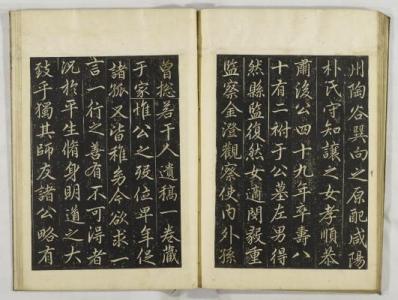 州陶谷巽向之原配咸陽
朴氏守知讓之女孝順恭
肅後公四十九年卒壽八
十有二祔于公墓左男得
然縣監復然女適閔毅重
監察金澄觀察使內外孫
曾摠若干人遺稿一卷藏
于家惟公之歿位卑年促
諸孤又皆稚弱今欲求一
言一行之善有不可得者
況於平生脩身明道之大
致乎獨其師友諸公略有